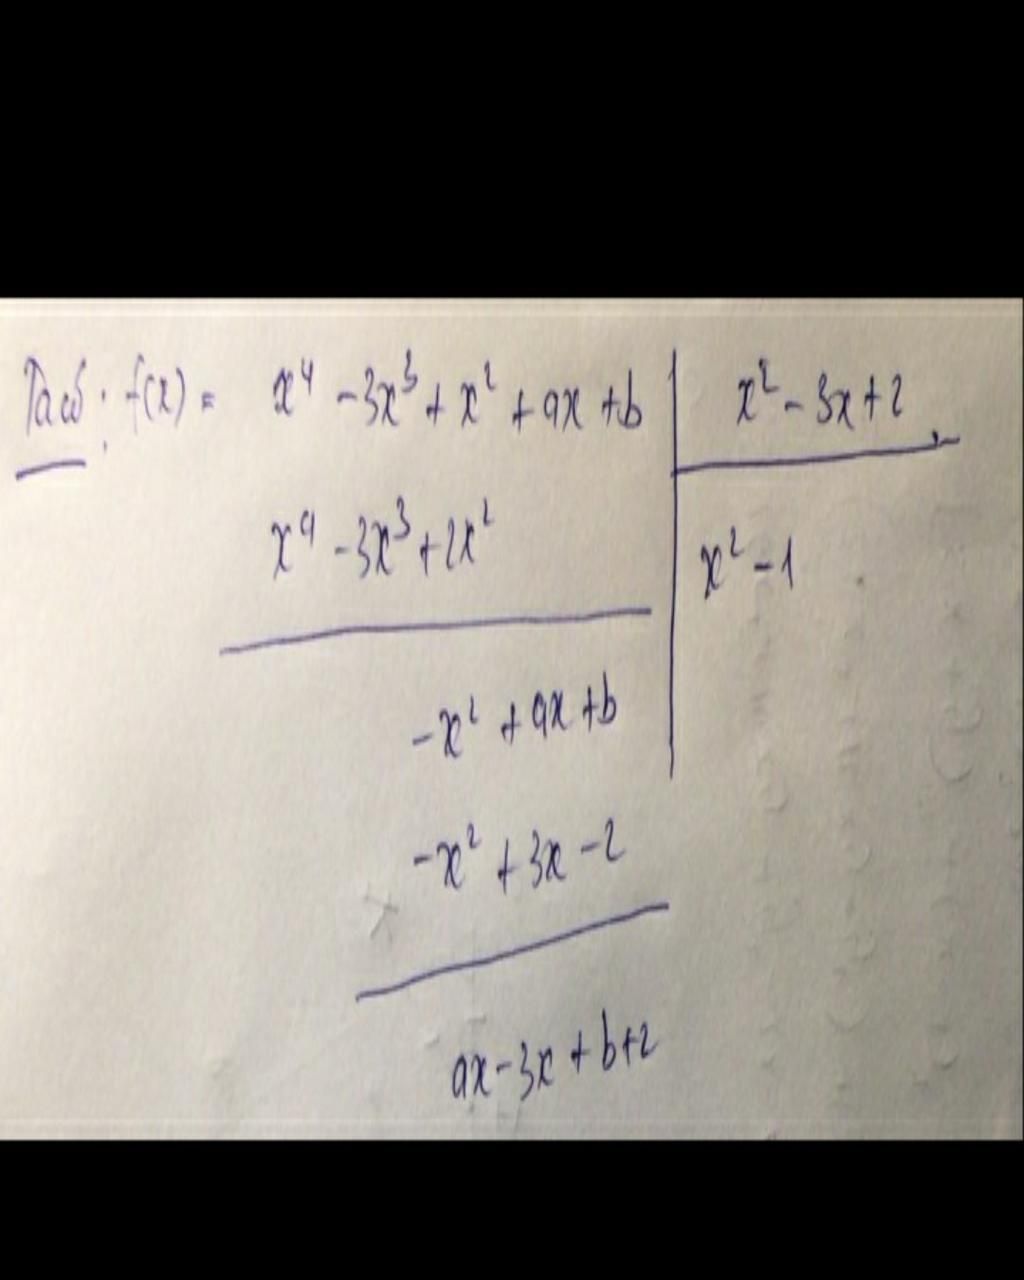 Ta có: f(x) = x⁴ - 3x³ + x² + ax + b | x² - 3x + 2
x⁴ - 3x³ + 2x² | x² - 1
-x² + ax + b
-x² + 3x - 2
ax - 3x + b + 2